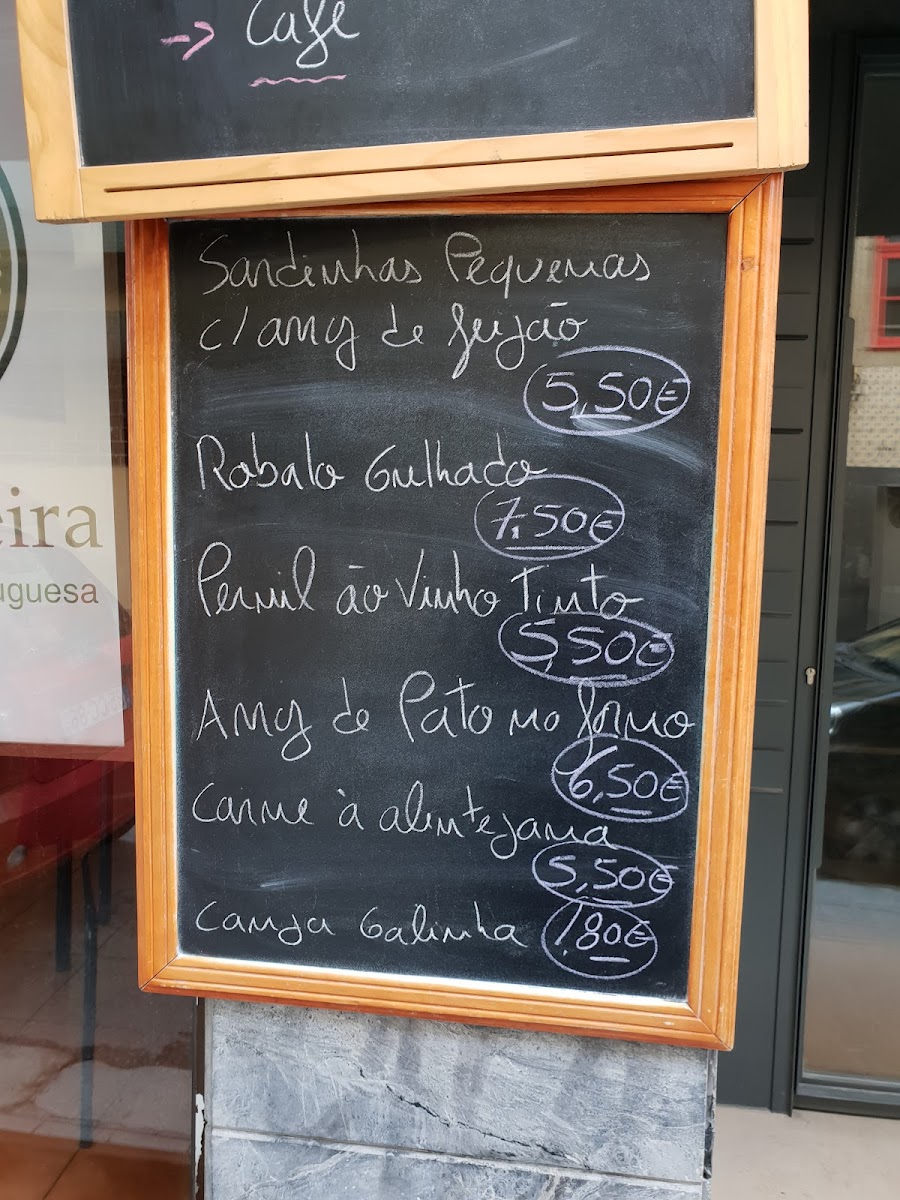 → Café
Sardinhas Pequenas
c/ arroz de feijão
5,50€
Robalo Grelhado
7,50€
Pernil ão Vinho Tinto
5,50€
Arroz de Pato no forno
6,50€
Carne à alentejana
5,50€
Canja Galinha 1,80€
eira
uguesa